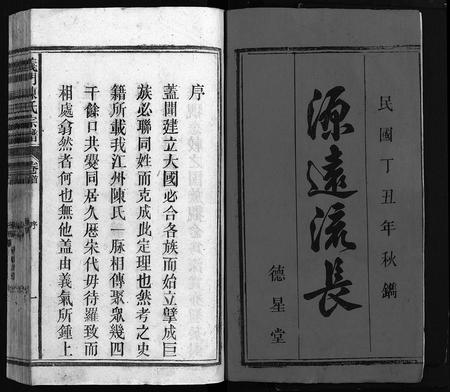 民國丁丑年秋鐫
源遠流長
德星堂
序
蓋聞建立大國必合各族而始立擘成巨
族必聯同姓而克成此定理也然考之史
籍所載我江州陳氏一脉相傳聚衆幾四
千餘口共爨同居久厯宋代毋待羅致而
相處翕然者何也無他盖由義氣所鍾上
義門陳氏宗譜
卷首
序
一